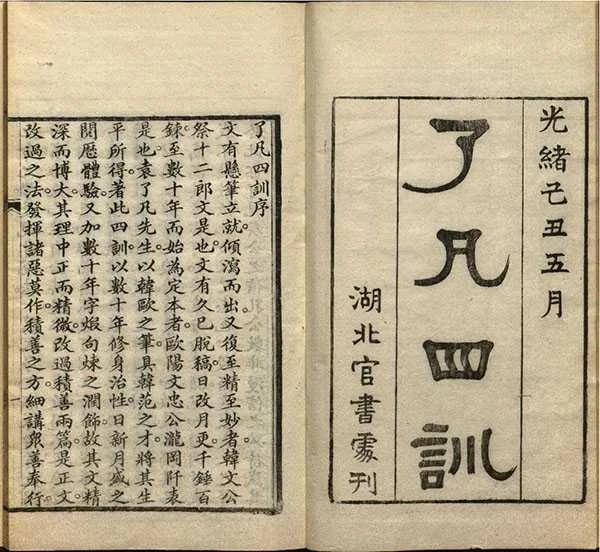 光緒己丑五月
了凡四訓
湖北官書處刊
了凡四訓序
文有懸筆立就。傾瀉而出。又復至精至妙者。韓文公
祭十二郎文是也。文有久已脫稿。日改月更。千錘百
鍊。至數十年而始為定本者。歐陽文忠公瀧岡阡表
是也。袁了凡先生以韓歐之筆。具韓范之才。將其生
平所得。著此四訓。以數十年修身治性。日新月盛之
閱歷體驗。又加數十年字煆句煉之潤飾。故其文精
深而博大。其理中正而精微。改過積善兩篇。是正文。
改過之法。發揮諸惡莫作。積善之方。細講眾善奉行。
一